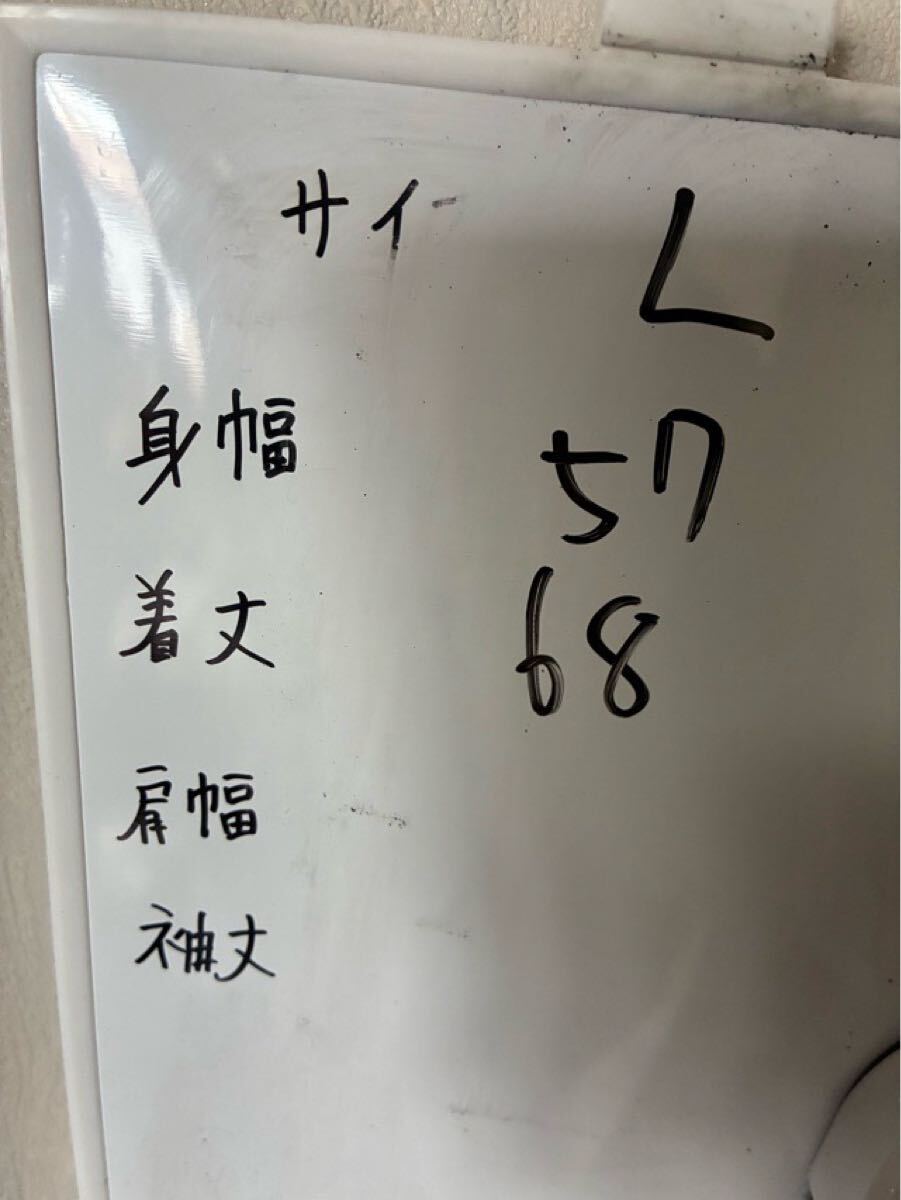 サイ L
身幅 57
着丈 68
肩幅
袖丈